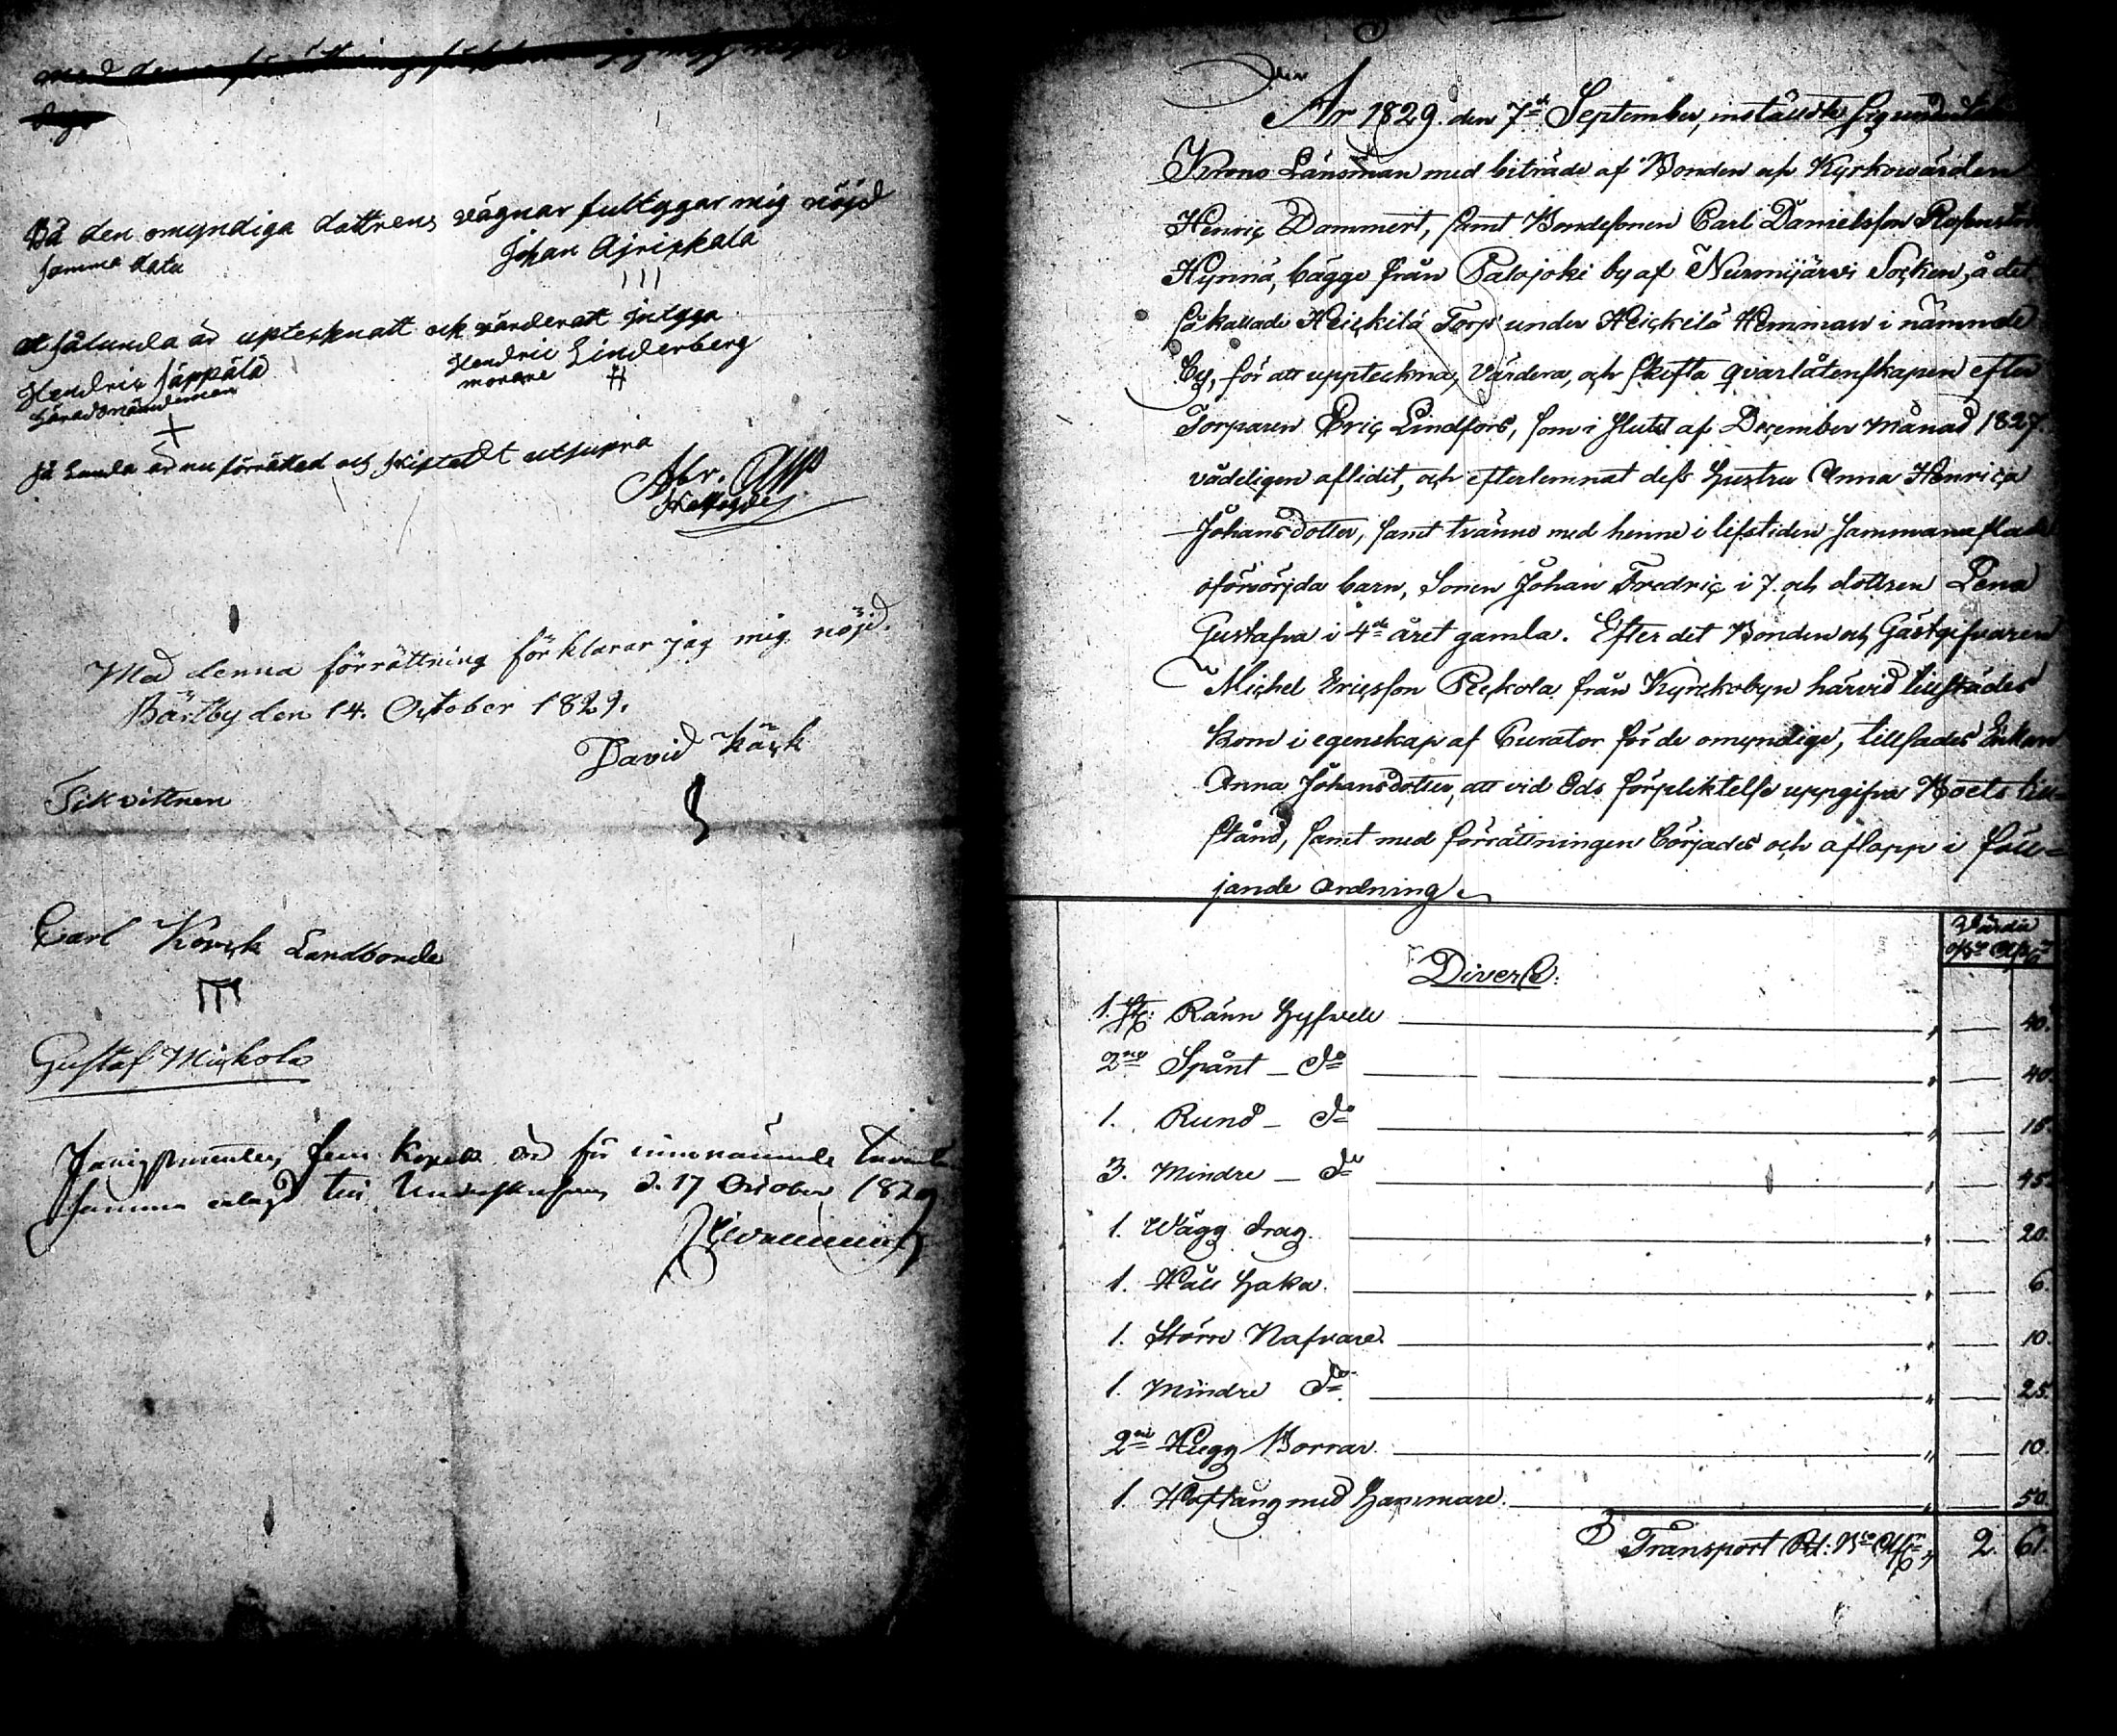 med denna förrättning
På den omyndiga dottrens vägnar fultygar mig nöjd
samma data
Johan Äjriskala
at sålunda är uptesknatt och värderatt intyga
Hendric Jäppälä
häradsnämdeman
Hendric Linderberg
morane
så lunda är nu förrättad och skiptedt utsupra
Abr. Alfs
Med denna förrättning förklarar jag mig nöjd.
Bäilby den 14. October 1829.
David Käck
Till vittnen
Carl Korck Landbonde
Gustaf Mickola
fem kopek för innenämnde
samma till d. 17 October 1829
År 1829 den 7de September, instälde sig undertek
Krono Länsman med biträde af Bonden och Kyrkowärden
Henric Dammert, samt Bondesonen Carl Danielsson
Hynnä, bägge från Palojoki by af Nurmijärvi Socken, å det
så kallade Heickilä Torp under Heickilä Hemman i nämnde
By, för att uppteckna, värdera, och skifta qvarlåtenskapen efter
Torparen Eric Lindfors, som i slutet af December månad 1827.
vådeligen aflidit, och efterlemnat dess hustru Anna Henrica
Johansdotter, samt tvänne med henne i lifstiden sammanaflade
oförsörjda barn, Sonen Johan Fredric i 7. och dottren Lena
Gustafva i 4de året gamla. Efter det Bonden och Gästgifvaren
Michel Ericsson Reskola från Kyrckobyn härvid tillstädes
kom i egenskap af Curator för de omyndige, tillsades Enkan
Anna Johansdotter, att vid Eds förpliktelse uppgifva Boets till-
stånd, samt med förrättningen börjades och aflopp i föll-
jande Ordning.
Värde
Diverse:
1. st: Ränn hyfvell " — 40.
2ne Spånt — do " — 40.
1. Rund — do " — 15.
3. Mindre — do " — 45.
1. Wägg drag " — 20.
1. Håll haka. " — 6.
1. Större Nafvare. " — 10.
1. Mindre do " — 25.
2ne Hugg Borrar. " — 10.
1. Hoftång med hammare. " — 50.
Transport Rl: Bco Assn " 2. 61.